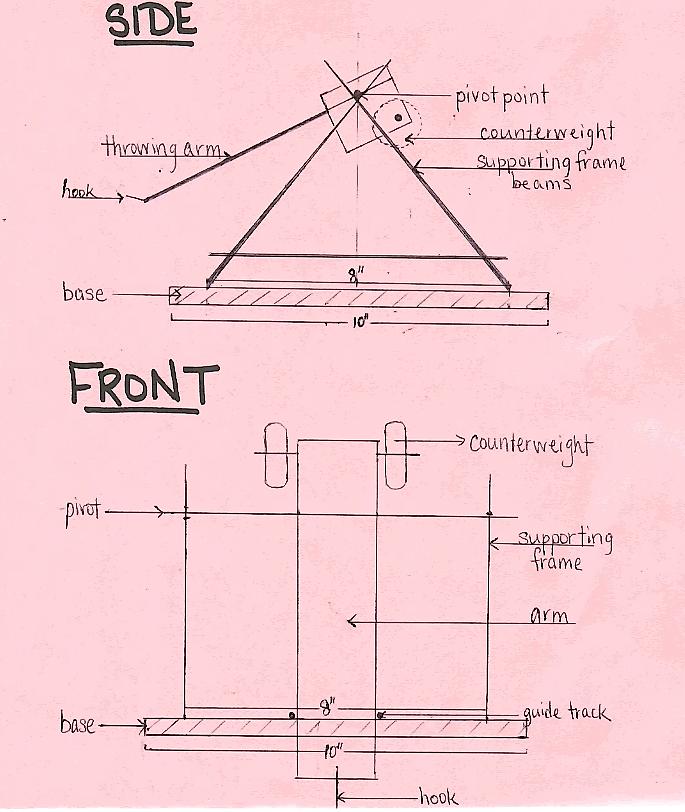 SIDE
pivot point
counterweight
throwing arm
supporting frame
beams
hook
8"
base
10"
FRONT
counterweight
pivot
supporting
frame
arm
8"
guide track
base
10"
hook